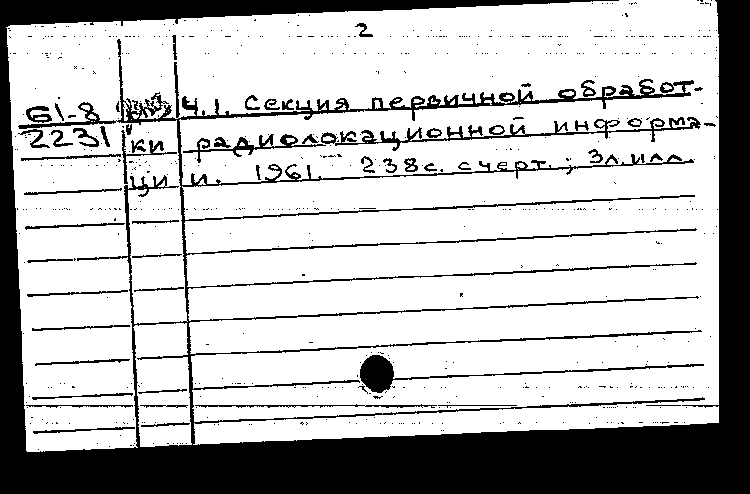 2
61-8 Ч.1. Секция первичной обработ-
2231 ки радиолокационной информа-
ции. 1961. 238с. с черт.; 3л. илл.